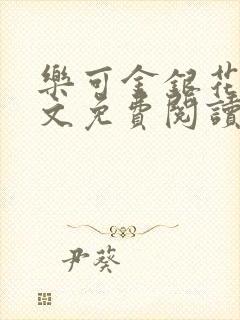 樂可金銀花
文免費閱讀
尹葵